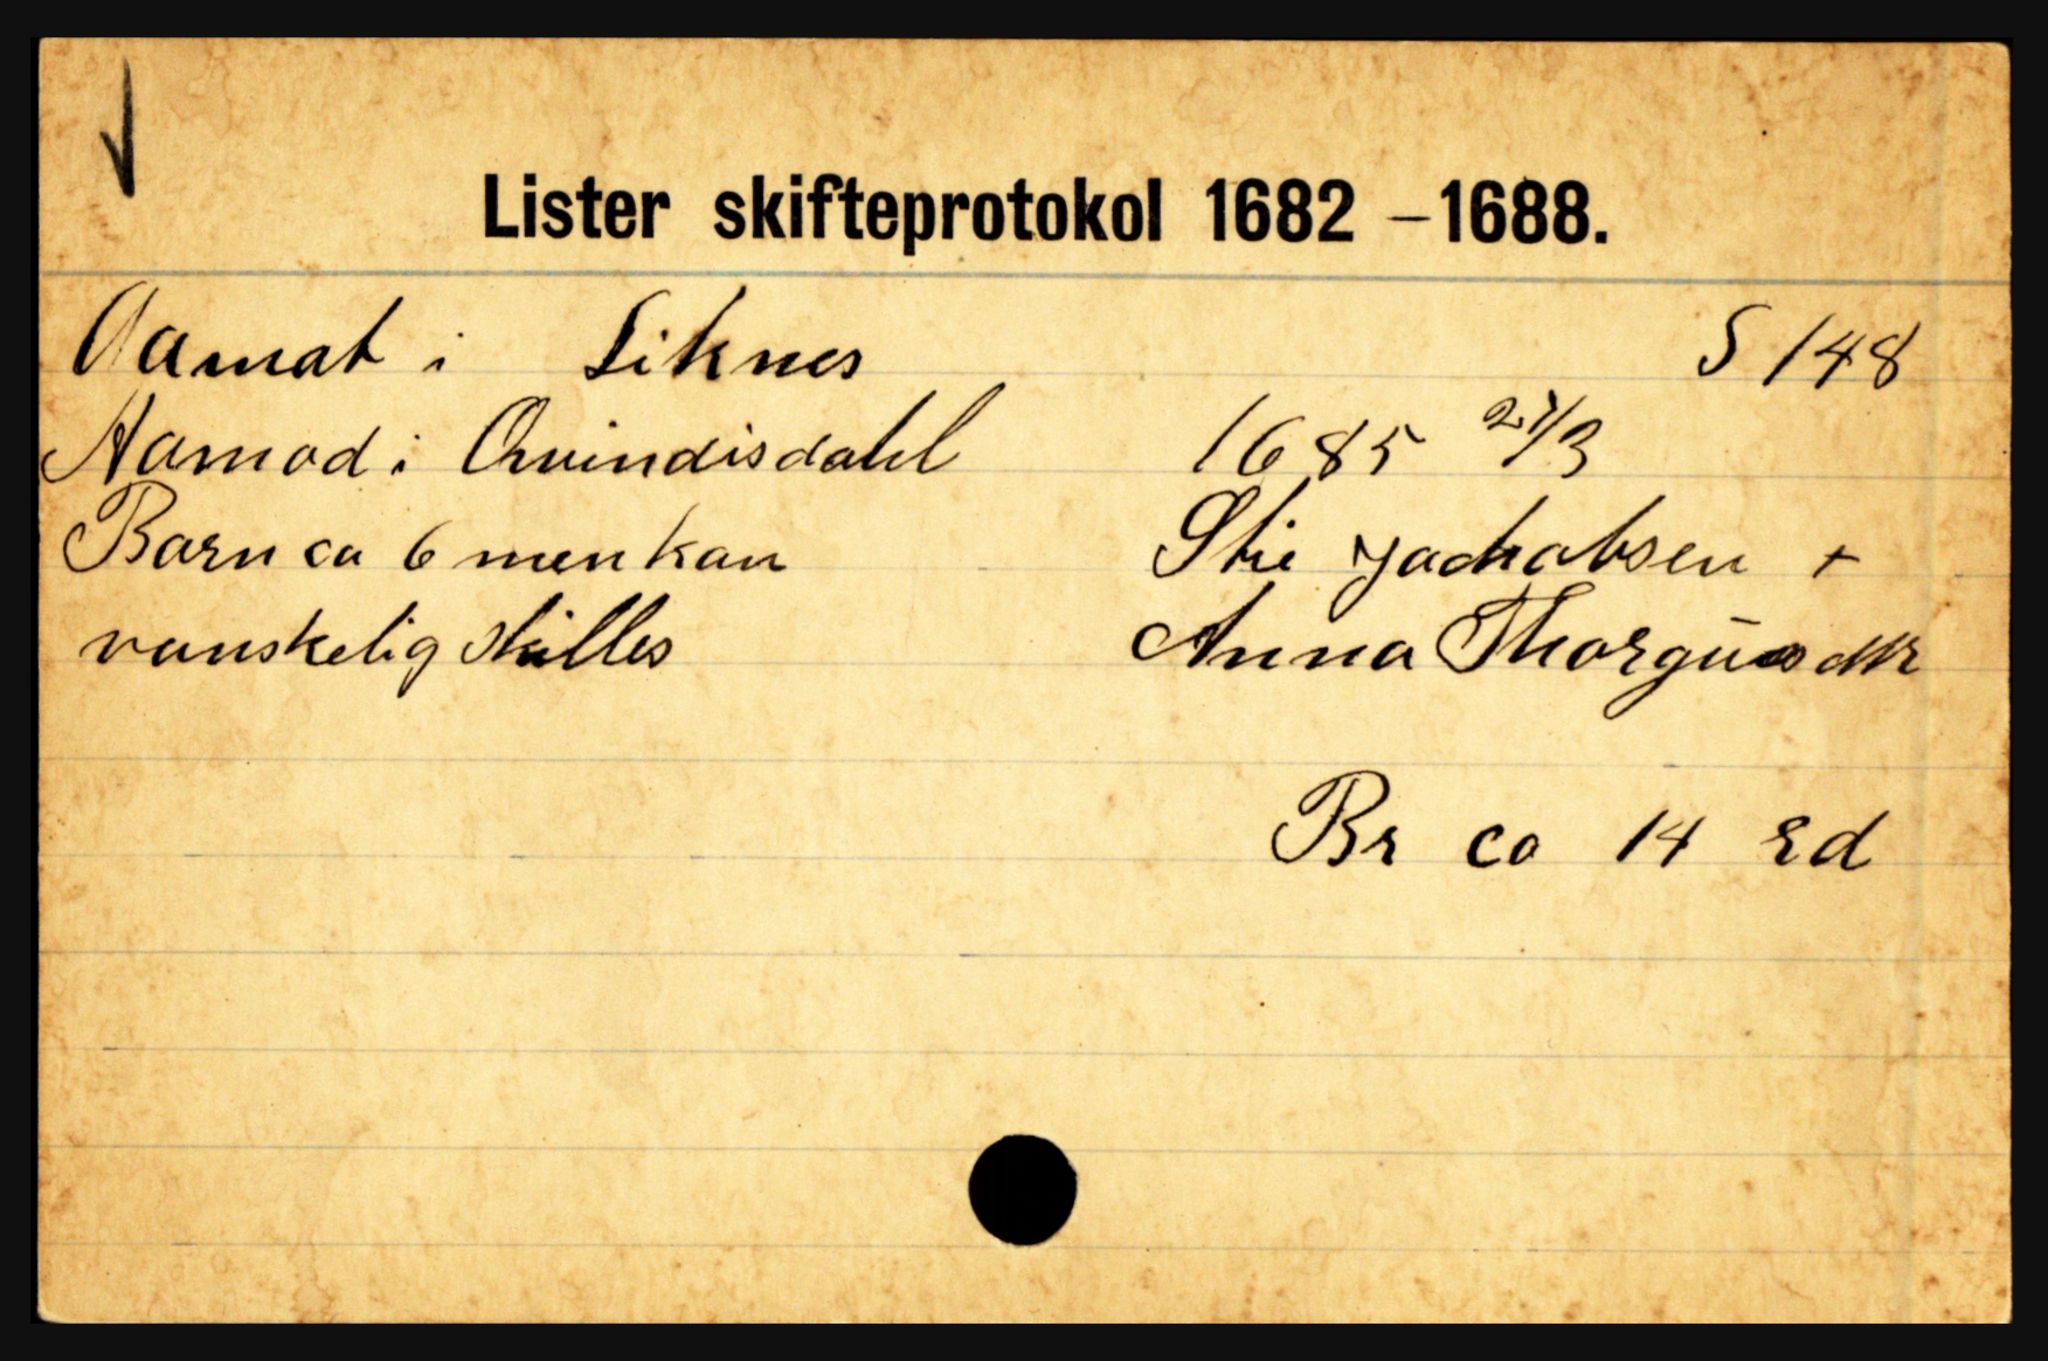 Lister skifteprotokol 1682 – 1688.
Aamat i Liknes S 148
Aamod i Qvindisdahl 1685 27/3
Barn ca 6 men kan Stie Jachobsen +
vanskelig skilles Anna Thorgüs dtr
Br ca 14 rd